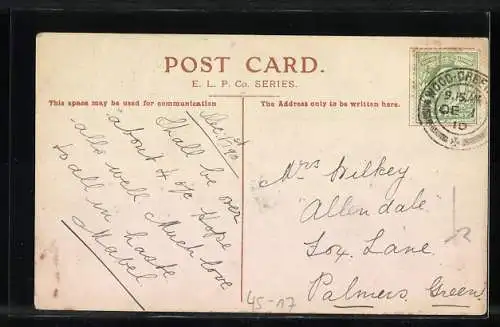 POST CARD.
E. L. P. Co. SERIES.
This space may be used for communication
The Address only to be written here.
WOOD-GREEN
9.15 AM
DE 1
10
Dec. 1st /10
Shall be over
about 4 o/c Hope
alls well Much love
to all in haste
Mabel
Mrs Wilkey
Allendale
Fox Lane
Palmers Green
45-17